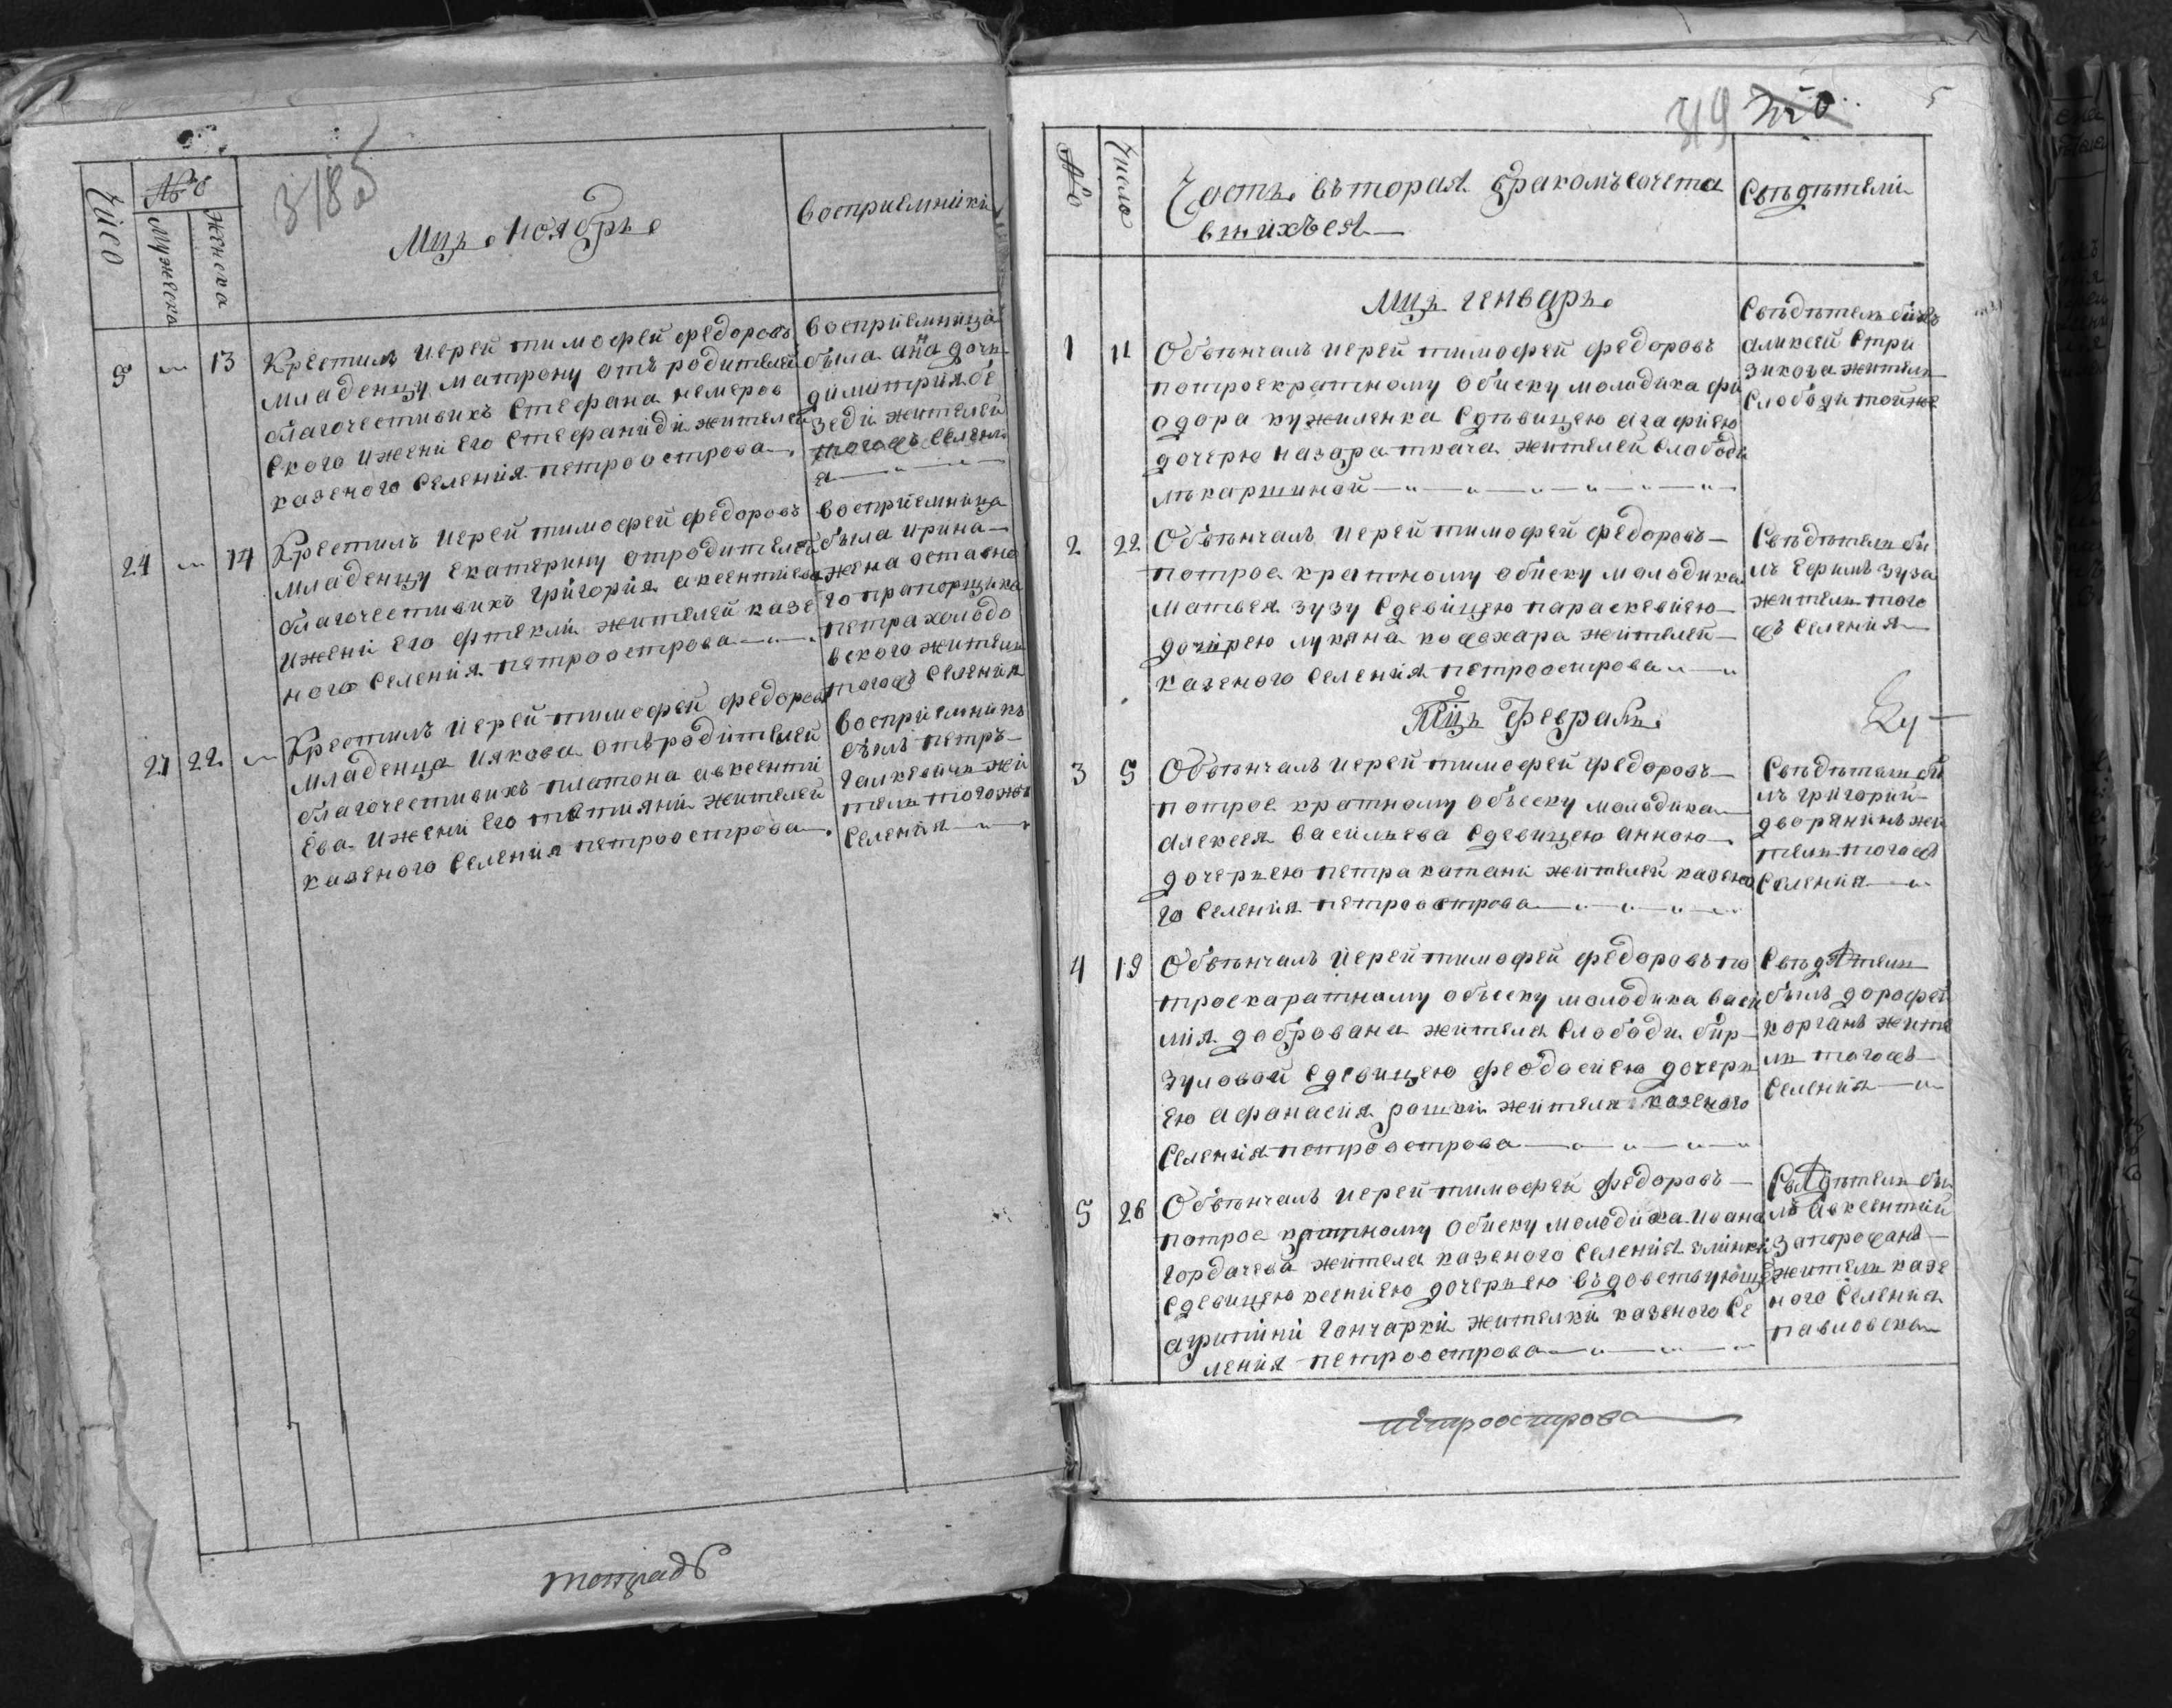 3185
Число
№о
Мужеска
Женска
Мцъ ноябрь
восприемники
9 13
Крестилъ иерей тимофей федоровъ
младенцу матрону отъ родителей
благочестивихъ стефана немеров
ского ижени его стефаниди жителей
казеного селения петроострова
восприемница
была анна дочь
димитрия бе
зеди жителей
тогожъ селени
я
24 14
Крестилъ иерей тимофей федоровъ
младенцу екатерину отродителей
благочестивихъ григория аксентиева
ижени его фтекли жителей казе
ного селения петроострова
восприемница
была ирина
жена оставно
го прапорщика
петра холодо
вского житель
тогожъ селения
27 22
Крестилъ иерей тимофей федоровъ
младенца иякова отъродителей
благочестивихъ платона авксенти
ева ижени его татияни жителей
казеного селения петроострова
восприемникъ
былъ петръ
галкевичъ жи
тель тогожъ
селения
тетрадь
319
5
№о
Число
Часть въторая бракомъсочета
вшихъся
Свъдътели
Мцъ генварь
1 11
Обвънчалъ иерей тимофей федоровъ
потроекратному обиску молодика фи
одора кужиленка сдъвицею агафиею
дочерю назара ткача жителей слободи
лъкаршиной
Свъдътель билъ
аликсей стри
зикоза житель
слободи тойже
2 22
Обвънчалъ иерей тимофей федоровъ
потрое кратному обиску молодика
матвея зузу сдевицею параскевиею
дочирею лукяна кожохара жителей
казеного селения петроострова
Свъдътель би
лъ ефимъ зуза
житель того
жъ селения
Мцъ февраль
3 5
Обвънчалъ иерей тимофей федоровъ
потрое кратному объиску молодика
алексея васильева сдевицею анною
дочерьею петра катани жителей казено
го селения петроострова
Свъдътель би
лъ григорий
дворянинъ жи
тель тогожъ
селения
4 19
Обвънчалъ иерей тимофей федоровъ по
троекаратному объиску молодика васи
лия добрована жителя слободи бир
зуловой сдевицею феодосиею дочерь
ею афанасия рошки жителя казеного
селения петроострова
Свъдятель
былъ дорофей
корганъ жите
ль тогожъ
селения
5 26
Обвънчалъ иерей тимофей федоровъ
потрое кратному обиску молодика ивана
гордачева жителя казеного селения злинки
сдевицею ксениею дочерьею въдовствующей
агрипини гончарки жителки казеного се
ления петроострова
Свъдътель бы
лъ авксентий
запорожанъ
житель казе
ного селения
павловска
петроострова